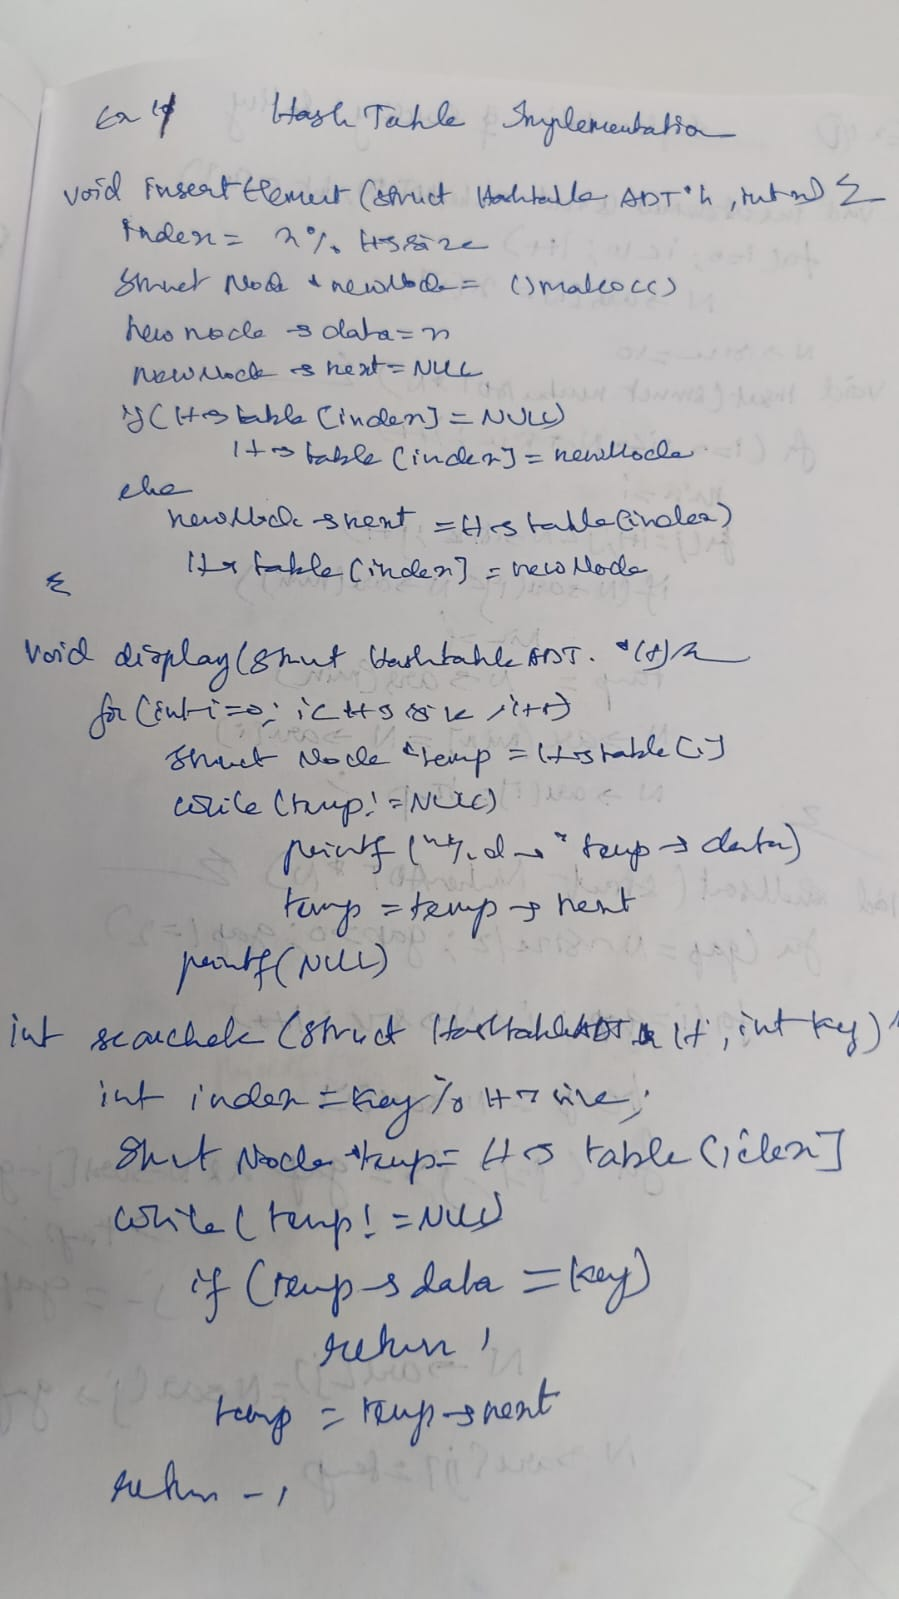 Ex 4
Hash Table Implementation
void insertElement (struct HashtableADT *h, int x) {
index = x % H→size
Struct Node * newNode = ()malloc()
newnode → data = x
newNode → next = NULL
if (H→table [index] = NULL)
H→table [index] = newNode
else
newNode → next = H→table[index]
H→table [index] = newNode
}
void display (struct HashtableADT *H) {
for (int i=0; i<H→size; i++)
Struct Node *temp = H→table[i]
while (temp! = NULL)
printf ("%d→" temp → data)
temp = temp → next
printf (NULL)
int searchele (struct HashtableADT * H, int key)
int index = key % H→size;
Struct Node *temp = H→ table [idex]
while (temp! = NULL)
if (temp→data = = key)
return 1
temp = temp→next
return -1